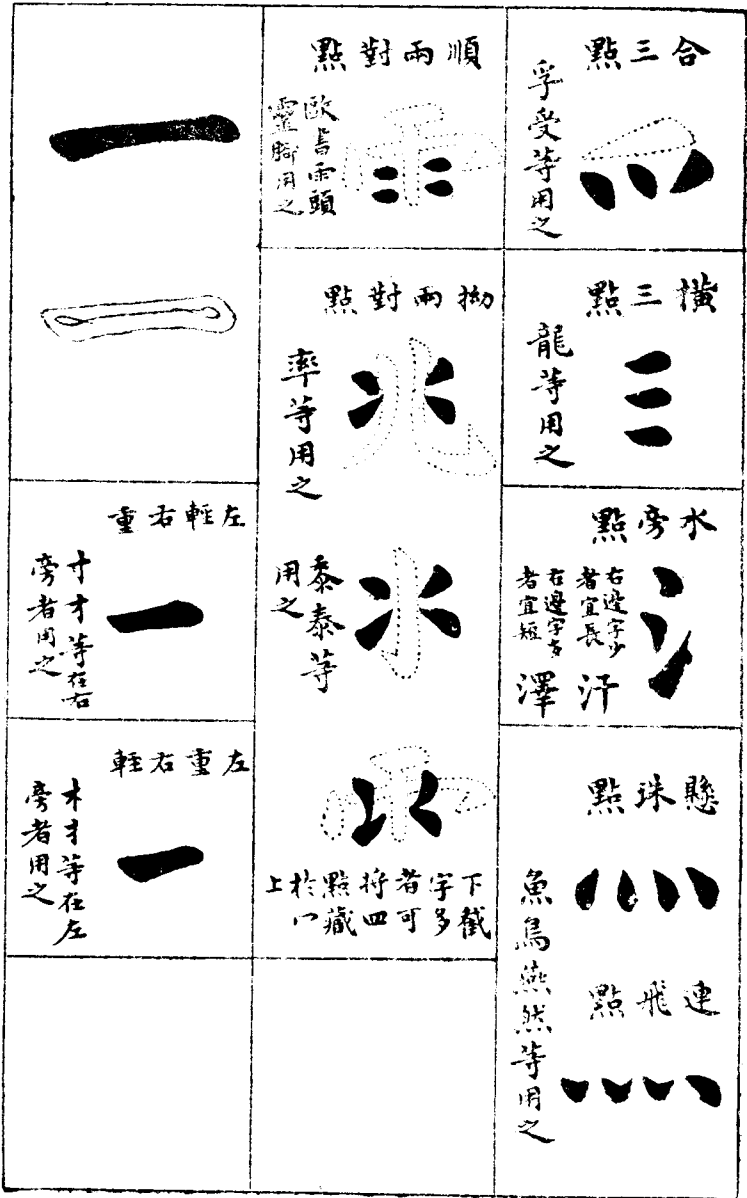 合三點
孚受等用之
橫三點
龍等用之
水旁點
右邊字少
者宜長
汗
右邊字多
者宜短
澤
懸珠點
魚鳥燕然等用之
連飛點
順兩對點
歐書雨頭
靈騎用之
拗兩對點
率等用之
黍泰等
用之
下截
字多
者可
將四
點藏
於冖
上
左輕右重
寸才等在右
旁者用之
左重右輕
木才等在左
旁者用之